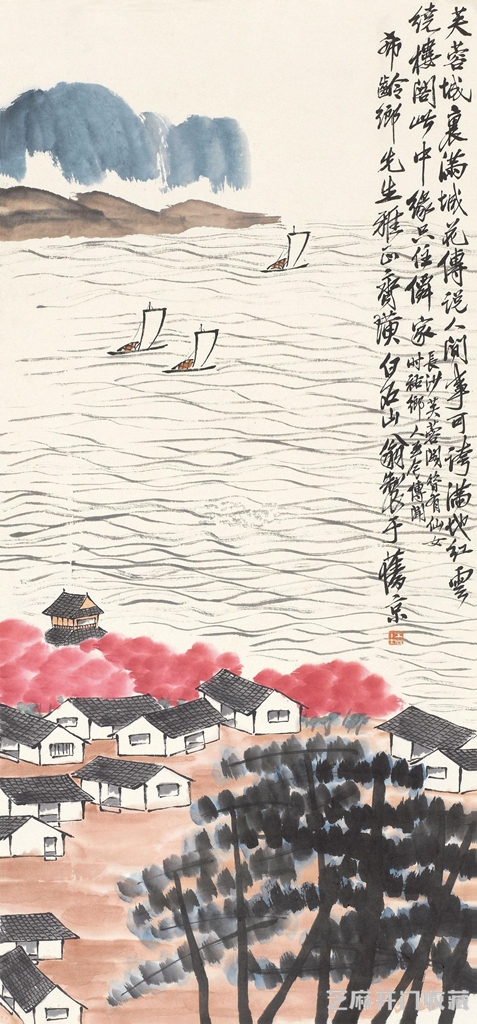 芙蓉城裏滿城花傳說人間事可誇滿地紅雲
繞樓閣此中緣只住僊家
長沙芙蓉閣曾有仙女
時
希齡鄉先生雅正齊璜白石山翁製于舊京
芝麻开门收藏